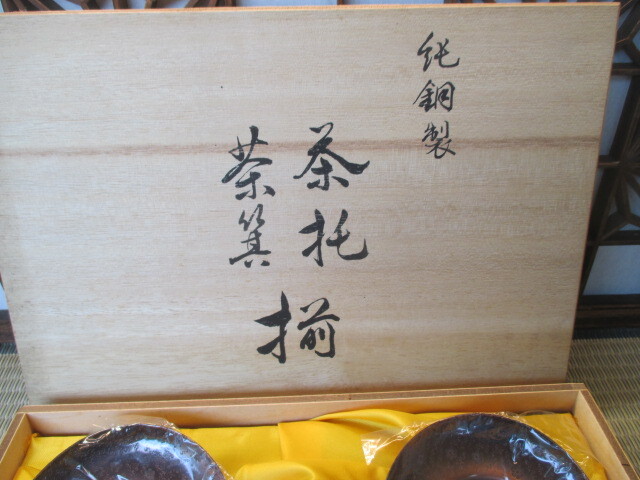 純銅製
茶托
茶箕
揃